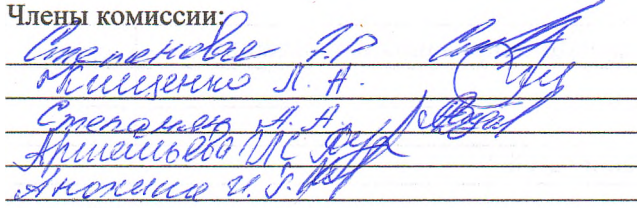 Члены комиссии:
Степановае Г.Р.
Кищенко Л. А.
Степанян А. А.
Артемьева И.С.
Анохина И. Г.